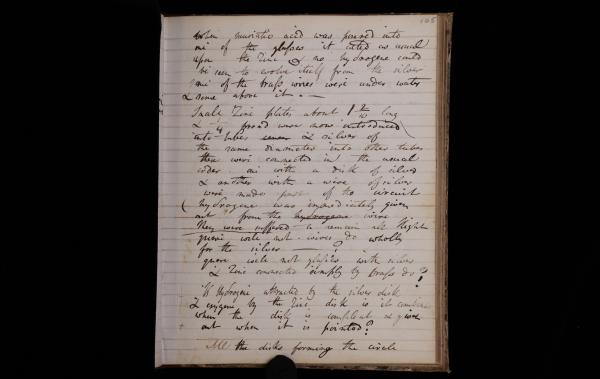 105
when muriatic acid was poured into
one of the glasses it acted as usual
upon the Zinc & no hydrogene could
be seen to evolve itself from the silver
some of the brass wires were under water
& some above it. —
Small Zinc plates about 1 long
& broad were now introduced
into tubes & silver of
the same diameter into other tubes
these were connected in the usual
order one with a disk of silver
& another with a wire of silver
were made part of the circuit
hydrogene was immediately given
out from the hydrogene wire
They were suffered to remain all Night
quere will not wires do wholly
for the silver — ?
quere will not glasses with silver
& Zinc connected simply by brass do?
Is Hydrogene attracted by the silver disk
& oxygene by the Zinc disk is it
when the disk is compleat & give
out when it is pointed?
All the disks forming the circle